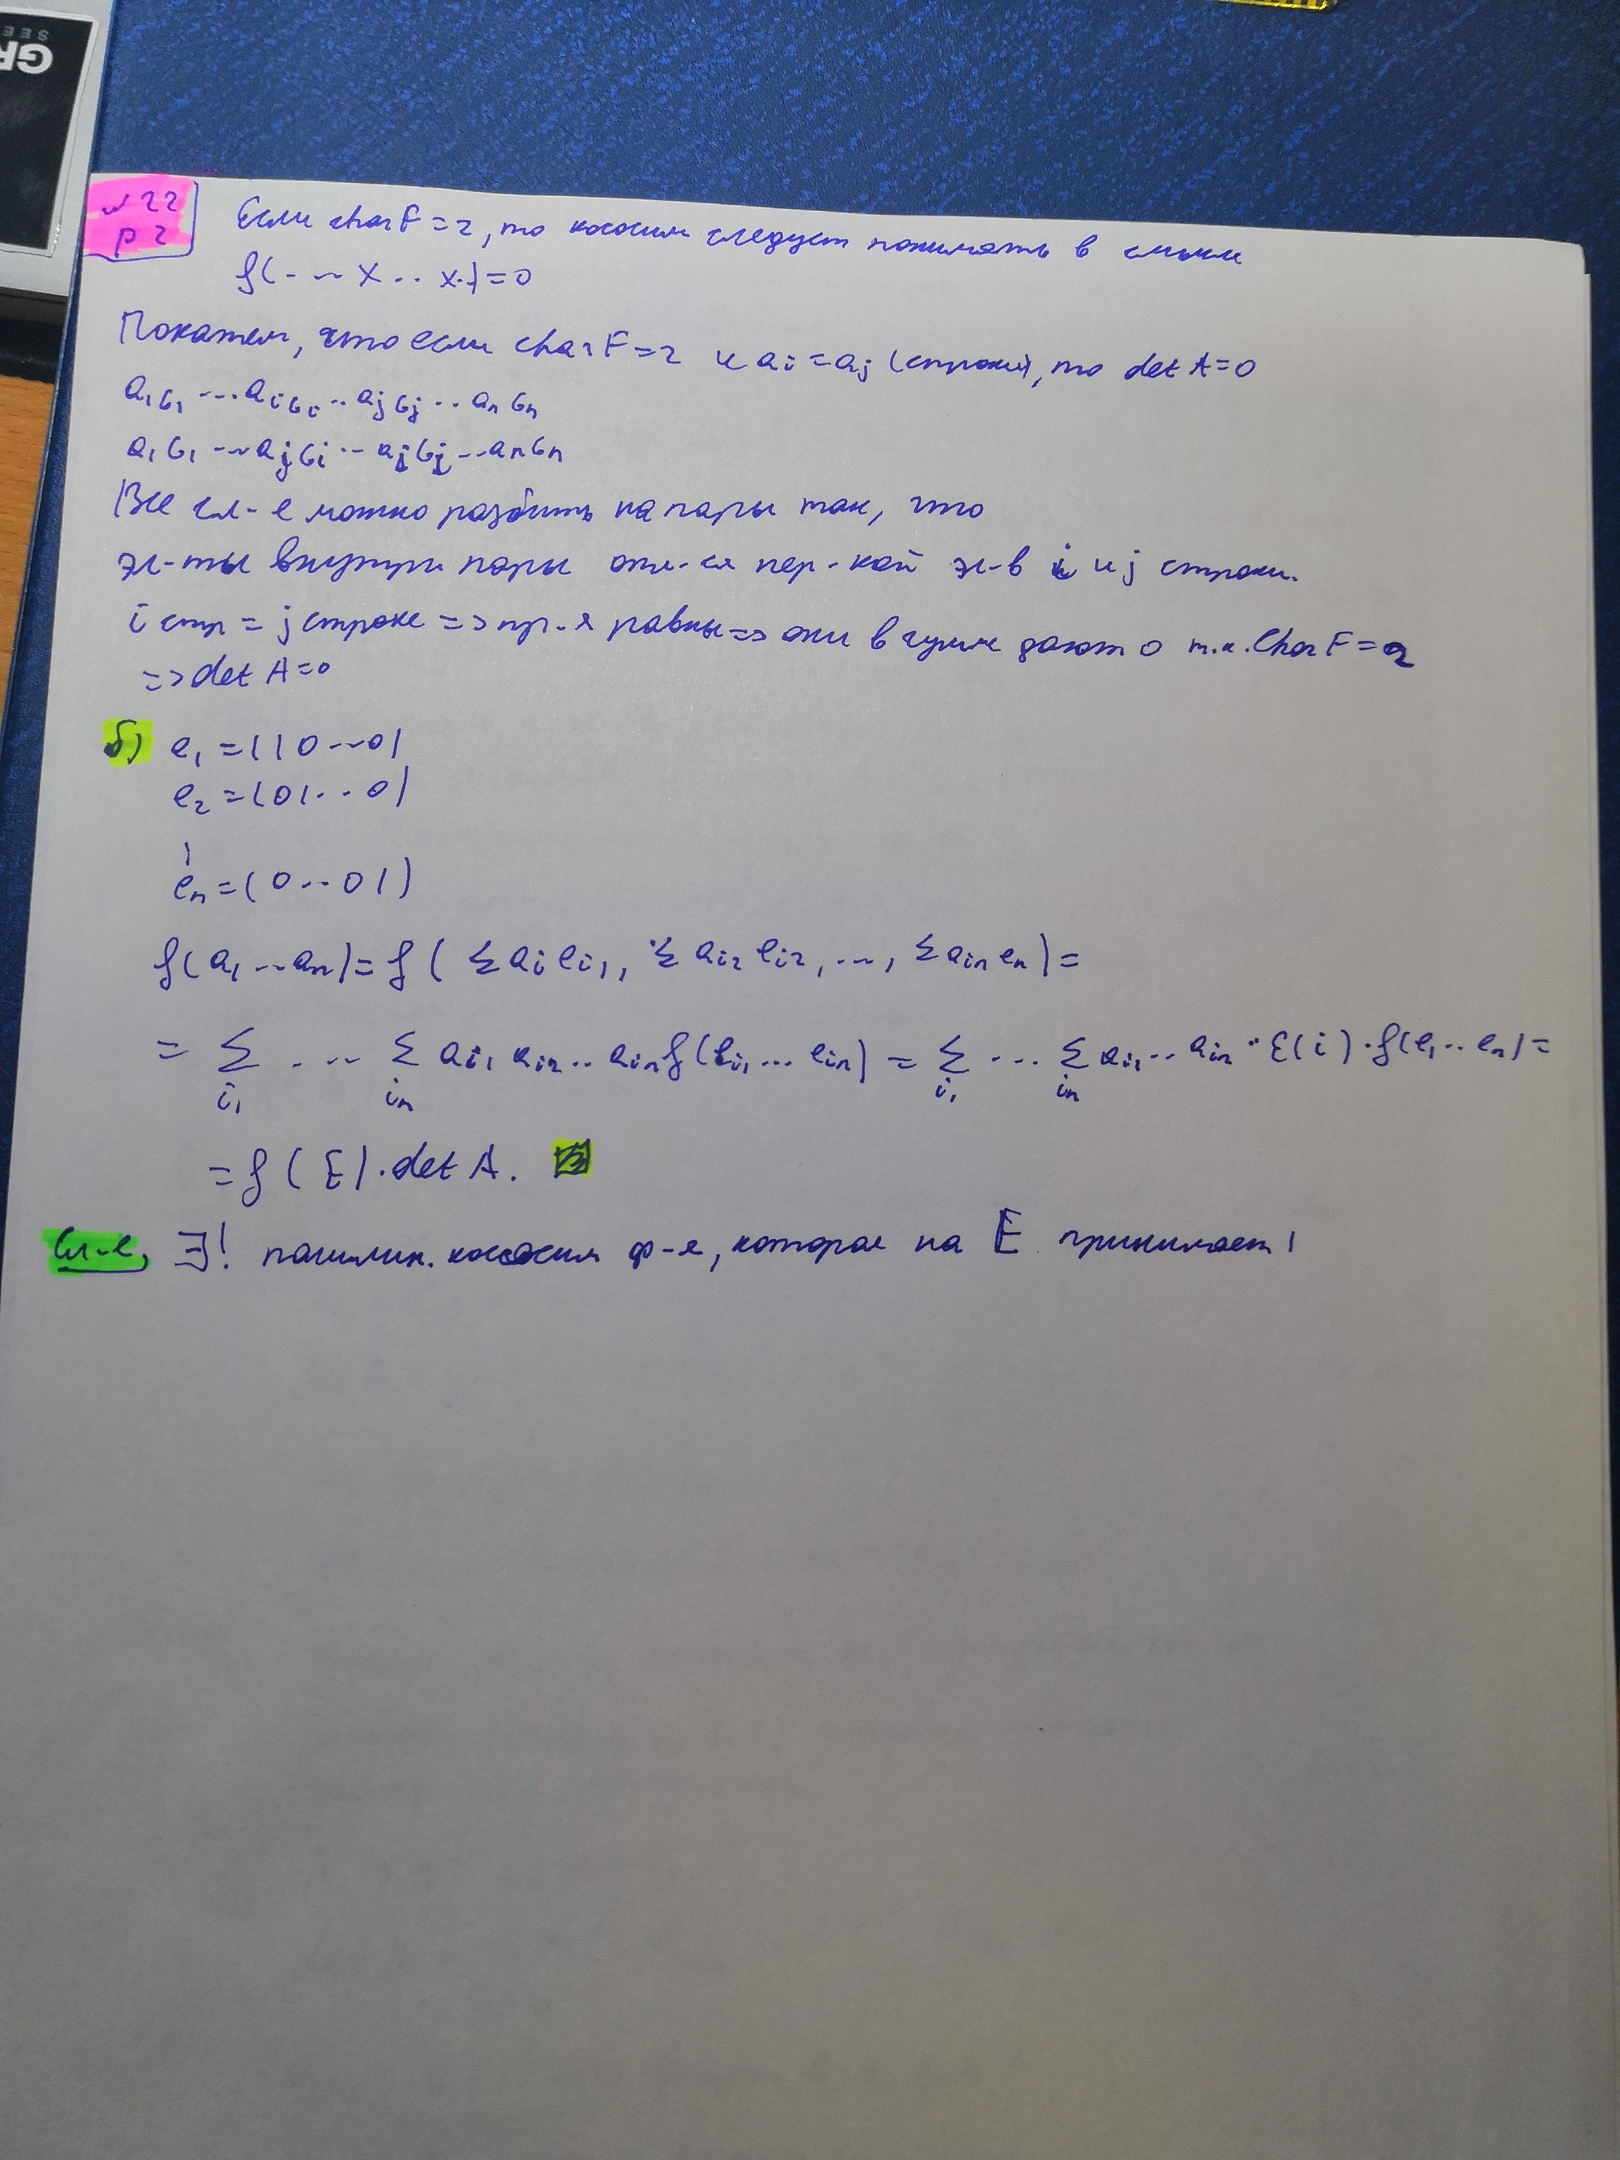 GR
SEE
№22
р2
Если char F = 2, то кососим следует понимать в смысле
f(- -- x .. x..) = 0
Покажем, что если char F = 2 и ai = aj (строки), то det A = 0
a1σ1 --- aiσi .. ajσj .. anσn
a1σ1 --- ajσi .. aiσj -- anσn
Все сл-е можно разбить на пары так, что
эл-ты внутри пары отл-ся пер-кой эл-в i и j строки.
i стр = j строке => пр-я равны => они в сумме дают 0 т.к. Char F = 2
=> det A = 0
б) e1 = (10 -- 0)
e2 = (01 .. 0)
en = (0 -- 01)
f(a1 -- an) = f( Σ ai ei1, Σ ai2 ei2, ..., Σ ain en) =
= Σi1 . -- Σin ai1 ai2 .. ain f(ei1 ... ein) = Σi1 ... Σin ai1 .. ain · ε(i) · f(e1 .. en) =
= f(E) · det A.
Сл-е, ∃! полилин. кососим ф-я, которая на E принимает 1